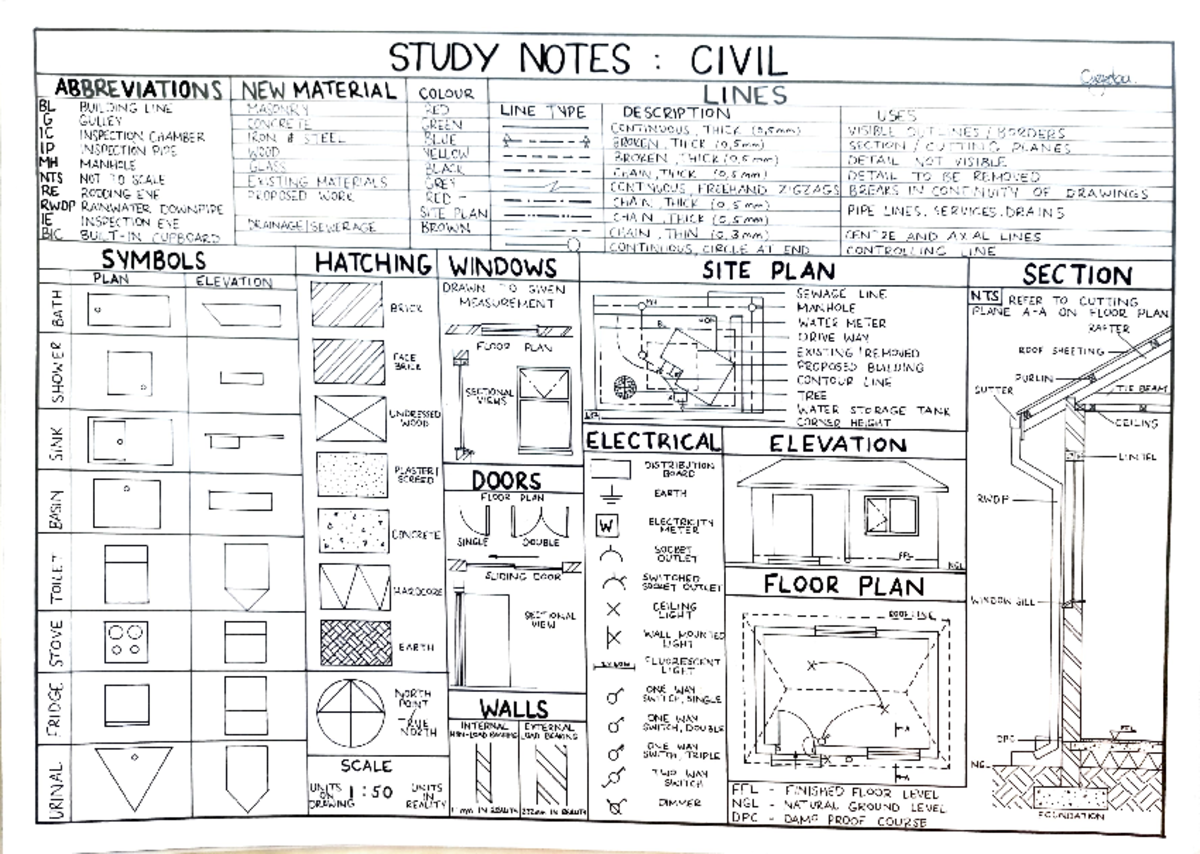 STUDY NOTES : CIVIL
ABBREVIATIONS
BL BUILDING LINE
G GULLEY
IC INSPECTION CHAMBER
IP INSPECTION PIPE
MH MANHOLE
NTS NOT TO SCALE
RE RODDING EYE
RWDP RAINWATER DOWNPIPE
IE INSPECTION EYE
BIC BUILT-IN CUPBOARD
NEW MATERIAL
MASONRY
CONCRETE
IRON & STEEL
WOOD
GLASS
EXISTING MATERIALS
PROPOSED WORK
DRAINAGE/SEWERAGE
COLOUR
RED
GREEN
BLUE
YELLOW
BLACK
GREY
RED -
SITE PLAN
BROWN
LINES
LINE TYPE
DESCRIPTION
CONTINUOUS, THICK (0,5mm)
BROKEN, THICK (0,5mm)
BROKEN, THICK (0,5mm)
CHAIN, THICK (0,5mm)
CONTINUOUS, FREEHAND ZIGZAGS
CHAIN, THICK (0,5mm)
CHAIN, THICK (0,5mm)
CHAIN, THIN (0,3mm)
CONTINUOUS, CIRCLE AT END
USES
VISIBLE OUTLINES / BORDERS
SECTION / CUTTING PLANES
DETAIL NOT VISIBLE
DETAIL TO BE REMOVED
BREAKS IN CONTINUITY OF DRAWINGS
PIPE LINES, SERVICES, DRAINS
CENTRE AND AXIAL LINES
CONTROLLING LINE
SYMBOLS
PLAN ELEVATION
BATH
SHOWER
SINK
BASIN
TOILET
STOVE
FRIDGE
URINAL
HATCHING
BRICK
FACE
BRICK
UNDRESSED
WOOD
PLASTER/
SCREED
CONCRETE
HARDCORE
EARTH
NORTH
POINT
/
TRUE
NORTH
SCALE
UNITS
ON
DRAWING
1:50
UNITS
IN
REALITY
WINDOWS
DRAWN TO GIVEN
MEASUREMENT
FLOOR PLAN
SECTIONAL
VIEWS
DOORS
FLOOR PLAN
SINGLE DOUBLE
SLIDING DOOR
SECTIONAL
VIEW
WALLS
INTERNAL
NON-LOAD BEARING
EXTERNAL
LOAD BEARING
SITE PLAN
MH
BL
SEWAGE LINE
MANHOLE
WATER METER
DRIVE WAY
EXISTING/REMOVED
PROPOSED BUILDING
CONTOUR LINE
TREE
WATER STORAGE TANK
CORNER HEIGHT
ELECTRICAL
DISTRIBUTION
BOARD
EARTH
W
ELECTRICITY
METER
SOCKET
OUTLET
SWITCHED
SOCKET OUTLET
CEILING
LIGHT
WALL MOUNTED
LIGHT
FLUORESCENT
LIGHT
ONE WAY
SWITCH, SINGLE
ONE WAY
SWITCH, DOUBLE
ONE WAY
SWITCH, TRIPLE
TWO WAY
SWITCH
DIMMER
ELEVATION
FFL
NGL
FLOOR PLAN
ROOF LINE
A
A
FFL - FINISHED FLOOR LEVEL
NGL - NATURAL GROUND LEVEL
DPC - DAMP PROOF COURSE
SECTION
NTS REFER TO CUTTING
PLANE A-A ON FLOOR PLAN
RAFTER
ROOF SHEETING
PURLIN
GUTTER
TIE BEAM
CEILING
LINTEL
RWDP
WINDOW SILL
FFL
DPC
NGL
FOUNDATION